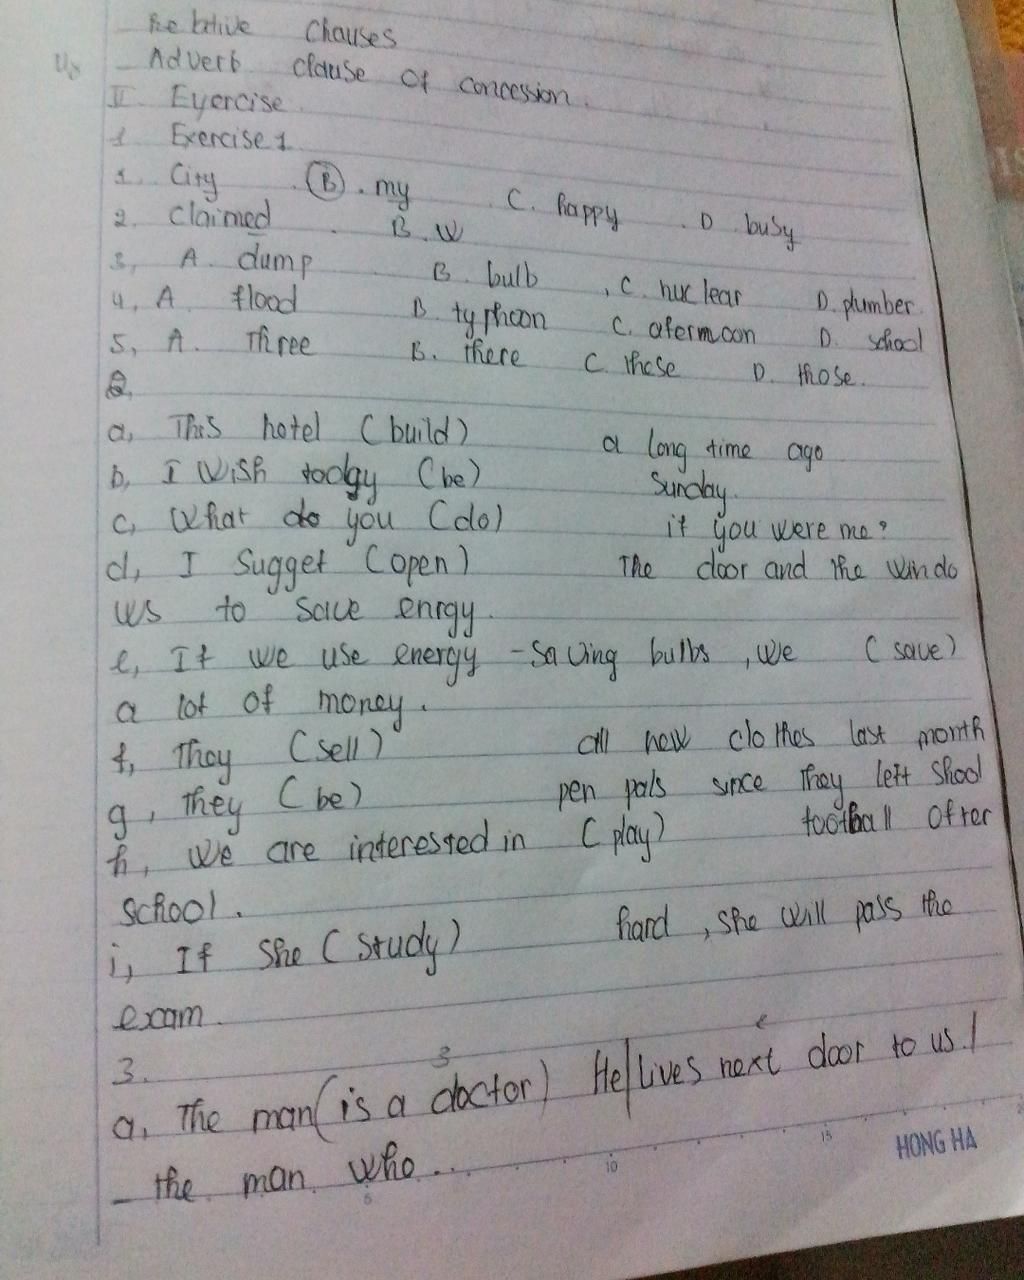 Relative Clauses
U8 - Adverb clause of concession.
II. Eyercise
1 Exercise 1
1. City . B . my C. happy . D busy
2. Claimed . B. W
3, A. dump B. bulb , C. nuclear D. plumber.
4, A flood B typhoon C. aternoon D. school
5, A. Three B. there C. these D. those.
2,
a, This hotel (build) a long time ago
b, I Wish today (be) Sunday.
c, What do you (do) if you were me?
d, I Sugget (open) The door and the windo
ws to save enrgy.
e, If we use energy - saving bulbs , we (save)
a lot of money.
f, They (sell) all new clothes last month
g, They (be) pen pals since they left Shool
h, We are interested in (play) football after
school.
i, If She (study) hard , she will pass the
exam.
3. 3
a, The man (is a doctor) He/lives next door to us./
- the man who...
5 10 15 HONG HA